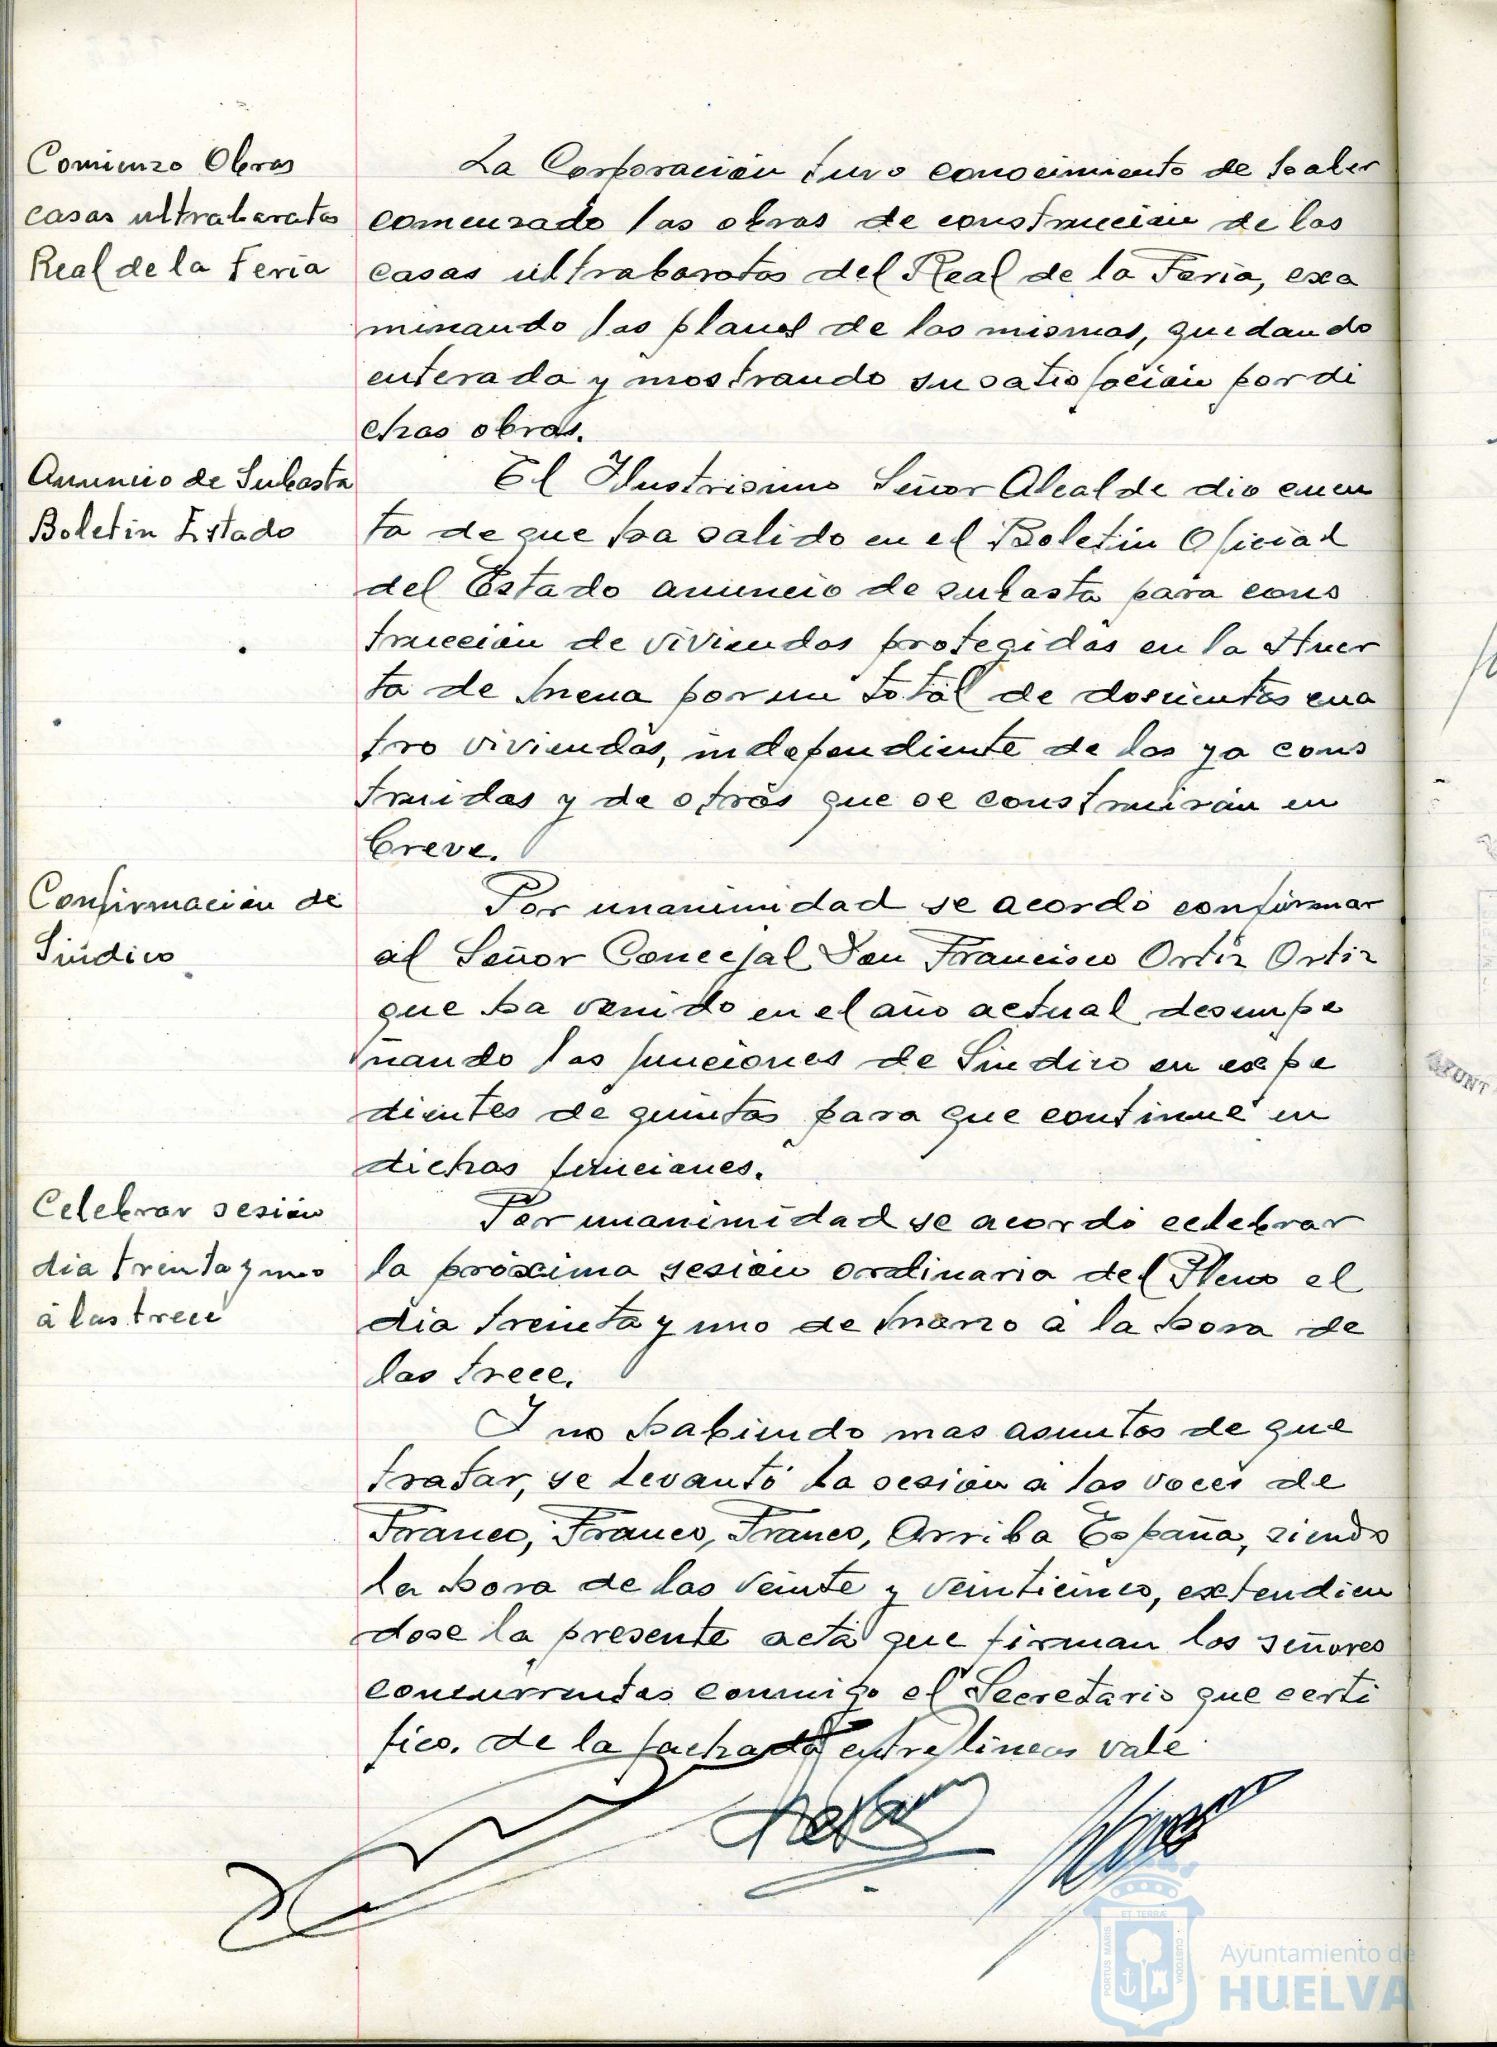 Comienzo Obras
casas ultrabaratas
Real de la Feria
La Corporación tuvo conocimiento de haber
comenzado las obras de construcción de las
casas ultrabaratas del Real de la Feria, exa
minando los planos de las mismas, quedando
enterada y mostrando su satisfación por di
chas obras.
Anuncio de Subasta
Boletin Estado
El Ilustrisimo Señor Alcalde dio cuen
ta de que ha salido en el Boletin Oficial
del Estado anuncio de subasta para cons
trucción de viviendas protegidas en la Huer
ta de Mena por un total de doscientas cua
tro viviendas, independiente de las ya cons
truidas y de otras que se construirán en
breve.
Confirmación de
Síndico
Por unanimidad se acordó confirmar
al Señor Concejal Don Francisco Ortiz Ortiz
que ha venido en el año actual desempe
ñando las funciones de Síndico en expe
dientes de quintas para que continue en
dichas funciones.
Celebrar sesión
dia treinta y uno
á las trece
Por unanimidad se acordó celebrar
la próxima sesión ordinaria del Pleno el
dia treinta y uno de Marzo á la hora de
las trece.
Y no habiendo mas asuntos de que
tratar, se levantó la sesión a las voces de
Franco, Franco, Franco, Arriba España, siendo
la hora de las veinte y veinticinco, extendien
dose la presente acta que firman los señores
concurrentes conmigo el Secretario que certi
fico. de la fachada entre lineas vale
AYUNT
PORTUS MARIS
ET TERRAE
CUSTODIA
Ayuntamiento de
HUELVA